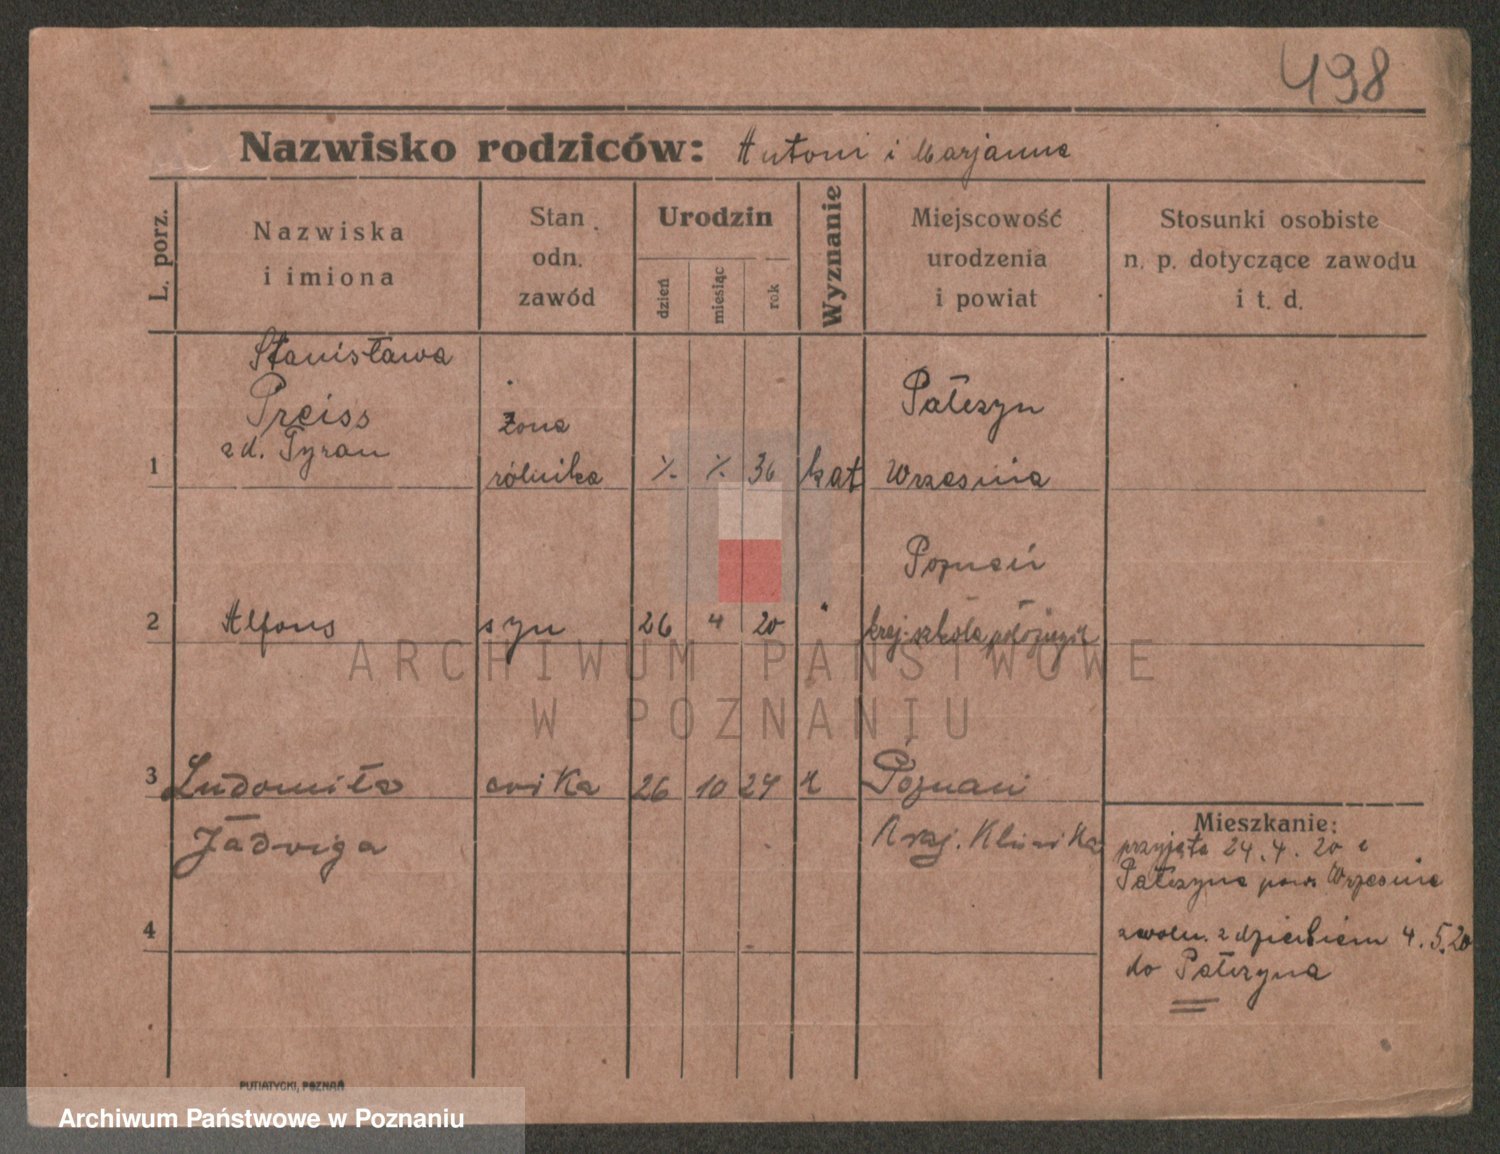 498
Nazwisko rodziców: Antoni i Marjanna
L. porz.
Nazwiska
i imiona
Stan
odn.
zawód
Urodzin
dzień
miesiąc
rok
Wyznanie
Miejscowość
urodzenia
i powiat
Stosunki osobiste
n. p. dotyczące zawodu
i t. d.
Stanisława
Preiss
zd. Tyran
1
żona
rólnika
36
kat
Pałczyn
Września
2
Alfons
syn
26 4 20
"
Poznań
kraj. szkoła położnych
3
Ludomiła
Jadwiga
córka
26 10 24
Poznań
Kraj. Klinika
4
Mieszkanie:
przyjęta 24.4.20 z
Pałczyna pow. Września
zwoln. z dzieckiem 4.5.20
do Pałczyna
PUTIATYCKI, POZNAŃ
ARCHIWUM PAŃSTWOWE
W POZNANIU
Archiwum Państwowe w Poznaniu